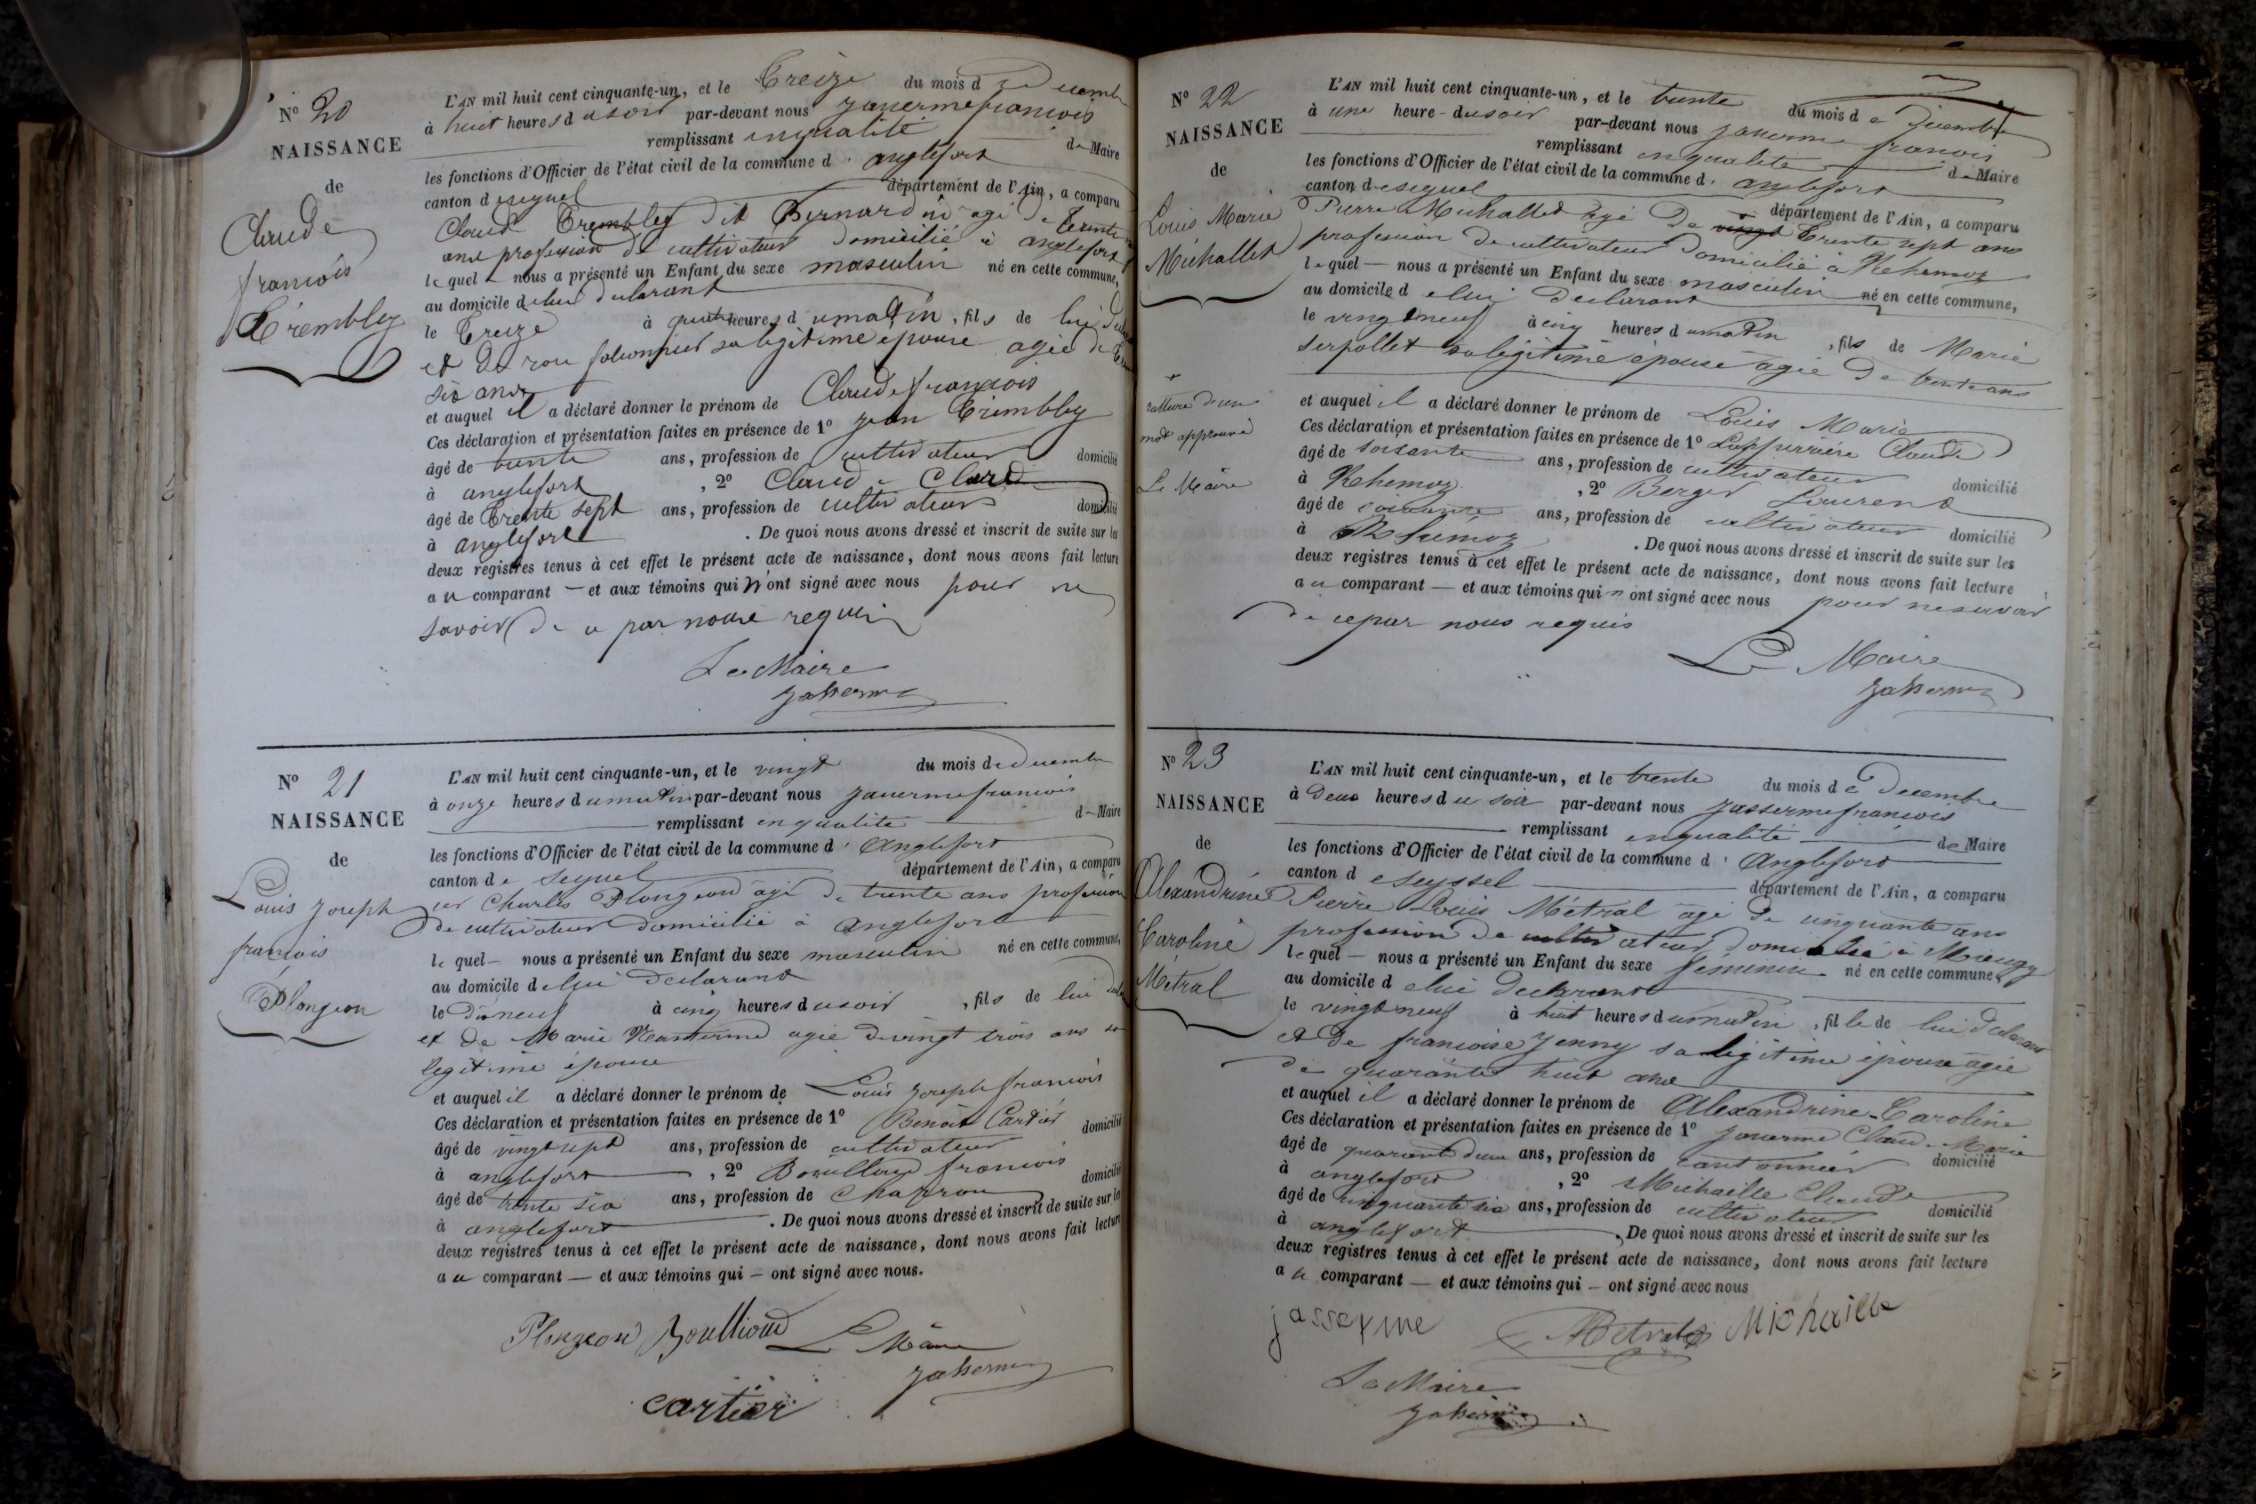 N° 20
NAISSANCE
de
Claude
francois
Trembley
L'AN mil huit cent cinquante-un, et le Treize du mois de Decembre
à huit heures du soir par-devant nous Jasserme francois
remplissant en qualité de Maire
les fonctions d'Officier de l'état civil de la commune d'anglefort
canton de seyssel département de l'Ain, a comparu
Claude Trembley dit Bernardin agé de Trente
ans profession de cultivateur domicilié à anglefort
lequel nous a présenté un Enfant du sexe masculin né en cette commune,
au domicile de lui declarant
le Treize à quatre heures du matin, fils de lui
et de sa légitime épouse agée de
six ans
et auquel il a déclaré donner le prénom de Claude francois
Ces déclaration et présentation faites en présence de 1° jean Trembley
âgé de trente ans, profession de cultivateur domicilié
à anglefort, 2° Claude
âgé de Trente sept ans, profession de cultivateur domicilié
à anglefort. De quoi nous avons dressé et inscrit de suite sur les
deux registres tenus à cet effet le présent acte de naissance, dont nous avons fait lecture
au comparant — et aux témoins qui n'ont signé avec nous pour ne
savoir de ce par nous requis
Le Maire
Jasserme
N° 21
NAISSANCE
de
Louis Joseph
francois
Plongeon
L'AN mil huit cent cinquante-un, et le vingt du mois de decembre
à onze heures du matin par-devant nous Jasserme francois
remplissant en qualité de Maire
les fonctions d'Officier de l'état civil de la commune d'Anglefort
canton de Seyssel département de l'Ain, a comparu
Charles Plongeon âgé de trente ans profession
de cultivateur domicilié à Anglefort
lequel — nous a présenté un Enfant du sexe masculin né en cette commune,
au domicile de lui declarant
le dixneuf à cinq heures du soir, fils de lui
et de Marie agée de vingt trois ans sa
legitime épouse
et auquel il a déclaré donner le prénom de Louis Joseph francois
Ces déclaration et présentation faites en présence de 1° Benoit Cartier
âgé de vingt sept ans, profession de cultivateur domicilié
à anglefort, 2° Boullioud francois
âgé de trente six ans, profession de Charron domicilié
à anglefort. De quoi nous avons dressé et inscrit de suite sur les
deux registres tenus à cet effet le présent acte de naissance, dont nous avons fait lecture
au comparant — et aux témoins qui — ont signé avec nous.
Plongeon Boullioud Le Maire
Jasserme
cartier
N° 22
NAISSANCE
de
Louis Marie
Michallet
rature d'un
mot approuvé
Le Maire
L'AN mil huit cent cinquante-un, et le trente du mois de Decembre
à une heure du soir par-devant nous Jasserme francois
remplissant en qualité de Maire
les fonctions d'Officier de l'état civil de la commune d'anglefort
canton de seyssel département de l'Ain, a comparu
Pierre Michallet âgé De vingt Trente sept ans
profession de cultivateur Domicilié à Rhemoz
lequel — nous a présenté un Enfant du sexe masculin né en cette commune,
au domicile de lui declarant
le vingt neuf à cinq heures du matin, fils de Marie
Serpollet sa légitime épouse agée De trente ans
et auquel il a déclaré donner le prénom de Louis Marie
Ces déclaration et présentation faites en présence de 1° Lapperrière Claude
âgé de soixante ans, profession de cultivateur domicilié
à Rhemoz, 2° Berger Laurent
âgé de soixante ans, profession de cultivateur domicilié
à Rhemoz. De quoi nous avons dressé et inscrit de suite sur les
deux registres tenus à cet effet le présent acte de naissance, dont nous avons fait lecture
au comparant — et aux témoins qui n ont signé avec nous pour ne savoir
de ce par nous requis
Le Maire
Jasserme
N° 23
NAISSANCE
de
Alexandrine
Caroline
Métral
L'AN mil huit cent cinquante-un, et le trente du mois de Decembre
à Deux heures du soir par-devant nous Jasserme francois
remplissant en qualité de Maire
les fonctions d'Officier de l'état civil de la commune d'Anglefort
canton de seyssel département de l'Ain, a comparu
Pierre Louis Métral âgé De cinquante ans
profession de cultivateur domicilié à
lequel — nous a présenté un Enfant du sexe féminin né en cette commune,
au domicile de lui Declarant
le vingt neuf à huit heures du matin, fille de lui declarant
et De francoise Jenny sa légitime épouse agée
de quarante huit ans
et auquel il a déclaré donner le prénom de Alexandrine-Caroline
Ces déclaration et présentation faites en présence de 1° Jasserme Claude Marie
âgé de quarante deux ans, profession de cantonnier domicilié
à anglefort, 2° Michaille Claude
âgé de cinquante six ans, profession de cultivateur domicilié
à anglefort. De quoi nous avons dressé et inscrit de suite sur les
deux registres tenus à cet effet le présent acte de naissance, dont nous avons fait lecture
au comparant — et aux témoins qui — ont signé avec nous
jasserme Metral Michaille
Le Maire
Jasserme